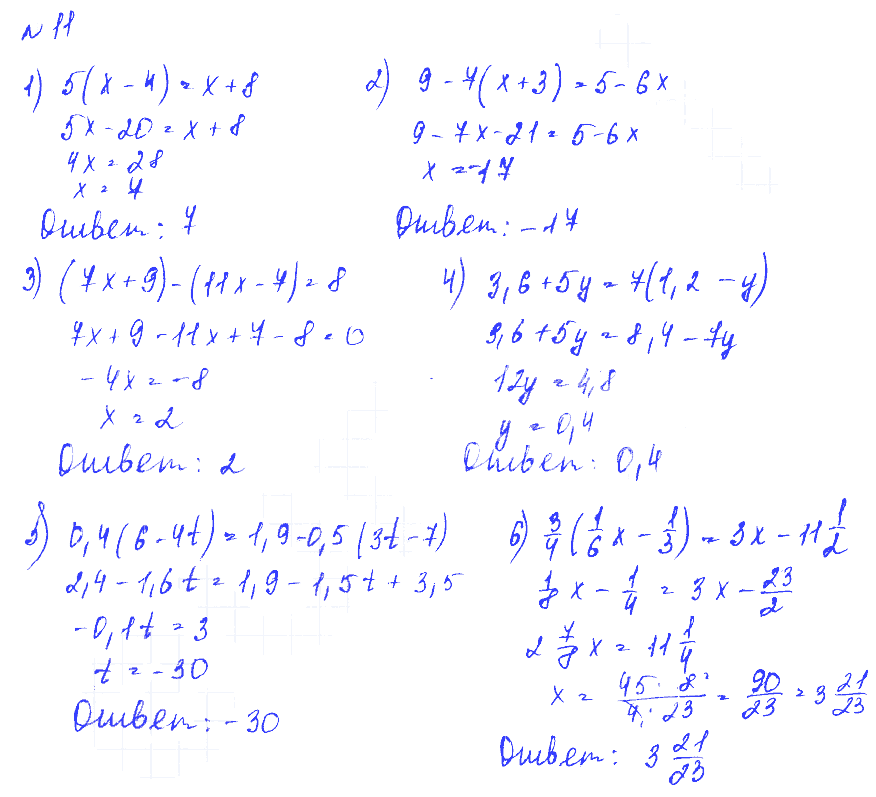 № 11
1) 5(x - 4) = x + 8
5x - 20 = x + 8
4x = 28
x = 7
Ответ: 7
2) 9 - 7(x + 3) = 5 - 6x
9 - 7x - 21 = 5 - 6x
x = -17
Ответ: -17
3) (7x + 9) - (11x - 7) = 8
7x + 9 - 11x + 7 - 8 = 0
-4x = -8
x = 2
Ответ: 2
4) 3,6 + 5y = 7(1,2 - y)
3,6 + 5y = 8,4 - 7y
12y = 4,8
y = 0,4
Ответ: 0,4
5) 0,4(6 - 4t) = 1,9 - 0,5(3t - 7)
2,4 - 1,6t = 1,9 - 1,5t + 3,5
-0,1t = 3
t = -30
Ответ: -30
6) 3/4 (1/6 x - 1/3) = 3x - 11 1/2
1/8 x - 1/4 = 3x - 23/2
2 7/8 x = 11 1/4
x = 45 · 8 / 4 · 23 = 90/23 = 3 21/23
Ответ: 3 21/23